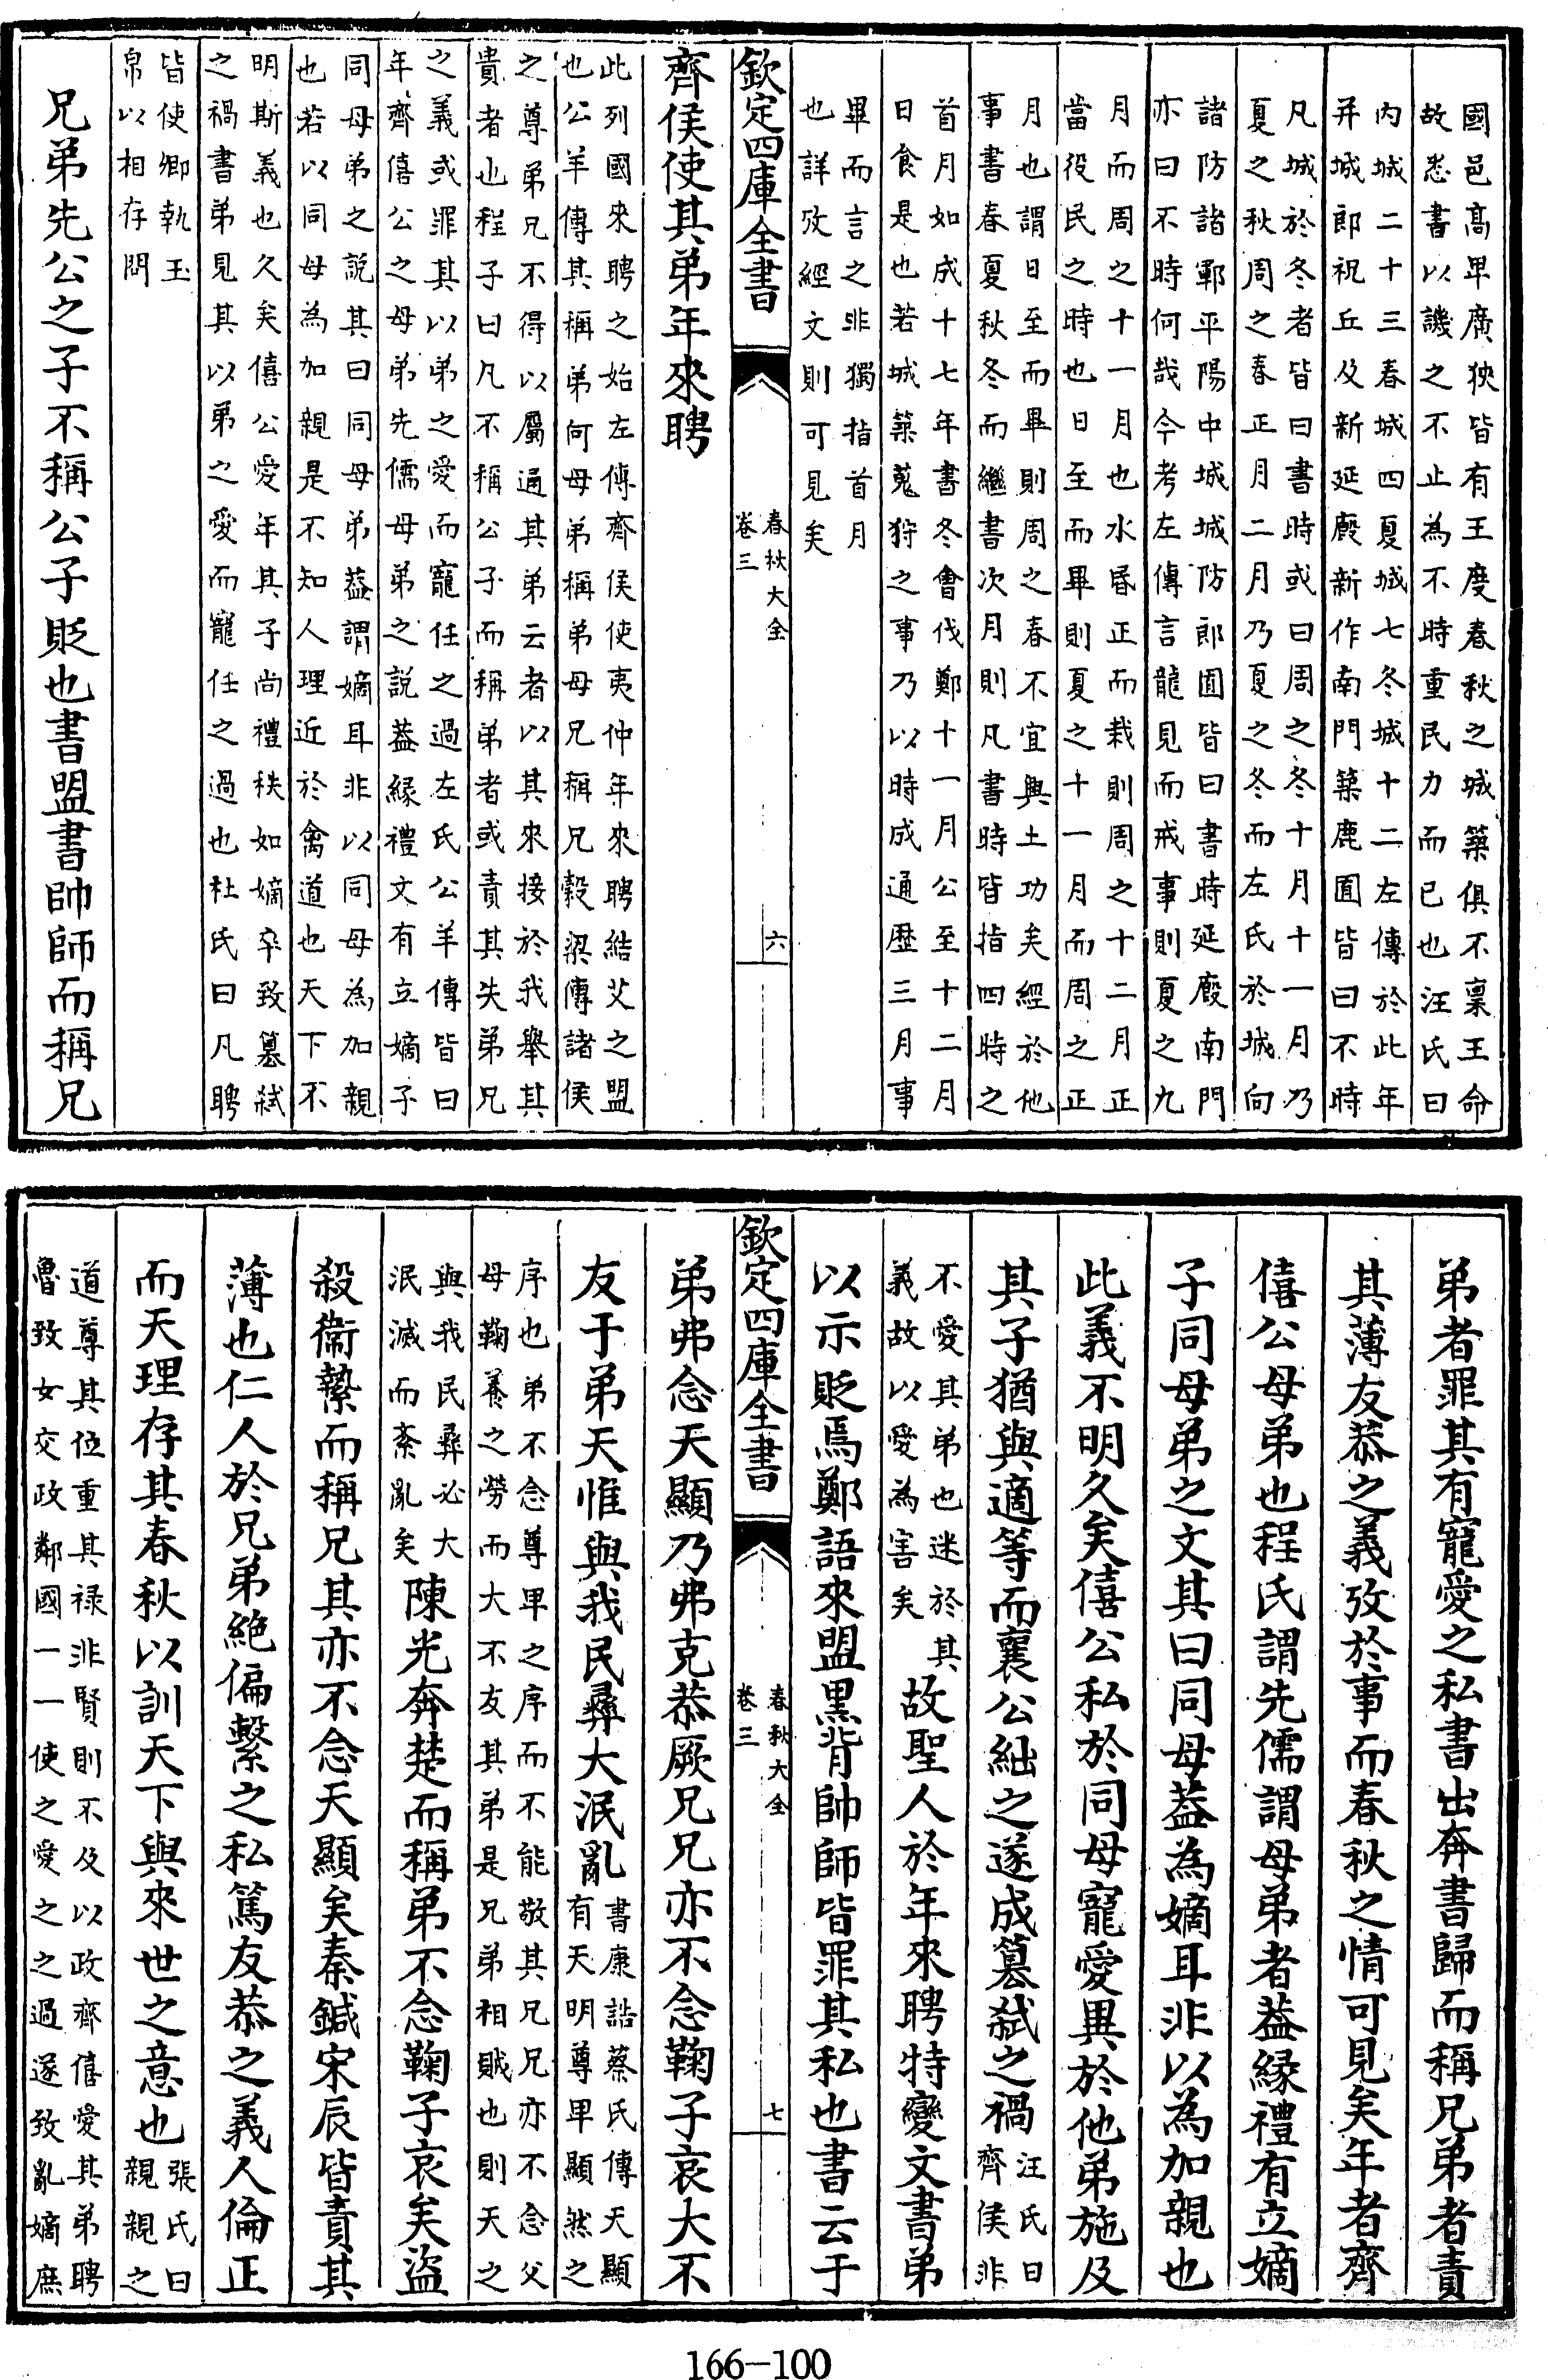 國邑髙卑廣狹皆有王度春秋之城築俱不稟王命
故悉書以譏之不止為不時重民力而已也汪氏曰
内城二十三春城四夏城七冬城十二左傳於此年
并城郎祝丘及新延廐新作南門築鹿囿皆曰不時
凡城於冬者皆曰書時或曰周之冬十月十一月乃
夏之秋周之春正月二月乃夏之冬而左氏於城向
諸防諸鄆平陽中城城防郎囿皆曰書時延廐南門
亦曰不時何哉今考左傳言龍見而戒事則夏之九
月而周之十一月也水昏正而栽則周之十二月正
當役民之時也日至而畢則夏之十一月而周之正
月也謂日至而畢則周之春不宜興土功矣經於他
事書春夏秋冬而繼書次月則凡書時皆指四時之
首月如成十七年書冬會伐鄭十一月公至十二月
日食是也若城築蒐狩之事乃以時成通歴三月事
畢而言之非獨指首月
也詳攷經文則可見矣
欽定四庫全書
春秋大全
卷三
六
齊侯使其弟年來聘
此列國來聘之始左傳齊侯使夷仲年來聘結艾之盟
也公羊傳其稱弟何母弟稱弟母兄稱兄穀梁傳諸侯
之尊弟兄不得以屬通其弟云者以其來接於我舉其
貴者也程子曰凡不稱公子而稱弟者或責其失弟兄
之義或罪其以弟之愛而寵任之過左氏公羊傳皆曰
年齊僖公之母弟先儒母弟之説葢縁禮文有立嫡子
同母弟之説其曰同母弟葢謂嫡耳非以同母為加親
也若以同母為加親是不知人理近於禽道也天下不
明斯義也久矣僖公愛年其子尚禮秩如嫡卒致簒弑
之禍書弟見其以弟之愛而寵任之過也杜氏曰凡聘
皆使卿執玉
帛以相存問
兄弟先公之子不稱公子貶也書盟書帥師而稱兄
弟者罪其有寵愛之私書出奔書歸而稱兄弟者責
其薄友恭之義攷於事而春秋之情可見矣年者齊
僖公母弟也程氏謂先儒謂母弟者葢縁禮有立嫡
子同母弟之文其曰同母葢為嫡耳非以為加親也
此義不明久矣僖公私於同母寵愛異於他弟施及
其子猶與適等而襄公絀之遂成簒弑之禍汪氏曰
齊侯非
不愛其弟也迷於其
義故以愛為害矣
故聖人於年來聘特變文書弟
以示貶焉鄭語來盟黑背帥師皆罪其私也書云于
欽定四庫全書
春秋大全
卷三
七
弟弗念天顯乃弗克恭厥兄兄亦不念鞠子哀大不
友于弟天惟與我民彛大泯亂書康誥蔡氏傳天顯
有天明尊卑顯然之
序也弟不念尊卑之序而不能敬其兄兄亦不念父
母鞠養之勞而大不友其弟是兄弟相賊也則天之
與我民彛必大
泯滅而紊亂矣
陳光奔楚而稱弟不念鞠子哀矣盜
殺衛縶而稱兄其亦不念天顯矣秦鍼宋辰皆責其
薄也仁人於兄弟絶偏繫之私篤友恭之義人倫正
而天理存其春秋以訓天下與來世之意也張氏曰
親親之
道尊其位重其禄非賢則不及以政齊僖愛其弟聘
魯致女交政鄰國一一使之愛之之過遂致亂嫡庶
166-100